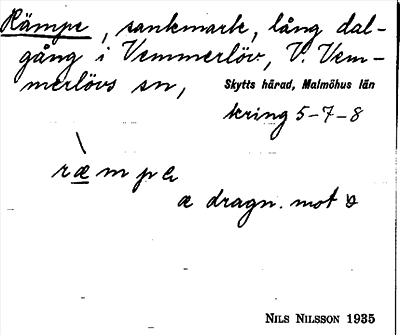 Rämpe, sankmark, lång dal-
gång i Vemmerlöv, V. Vem-
merlövs sn, Skytts härad, Malmöhus län
kring 5-7-8
ræmpə
æ dragn. mot
NILS NILSSON 1935